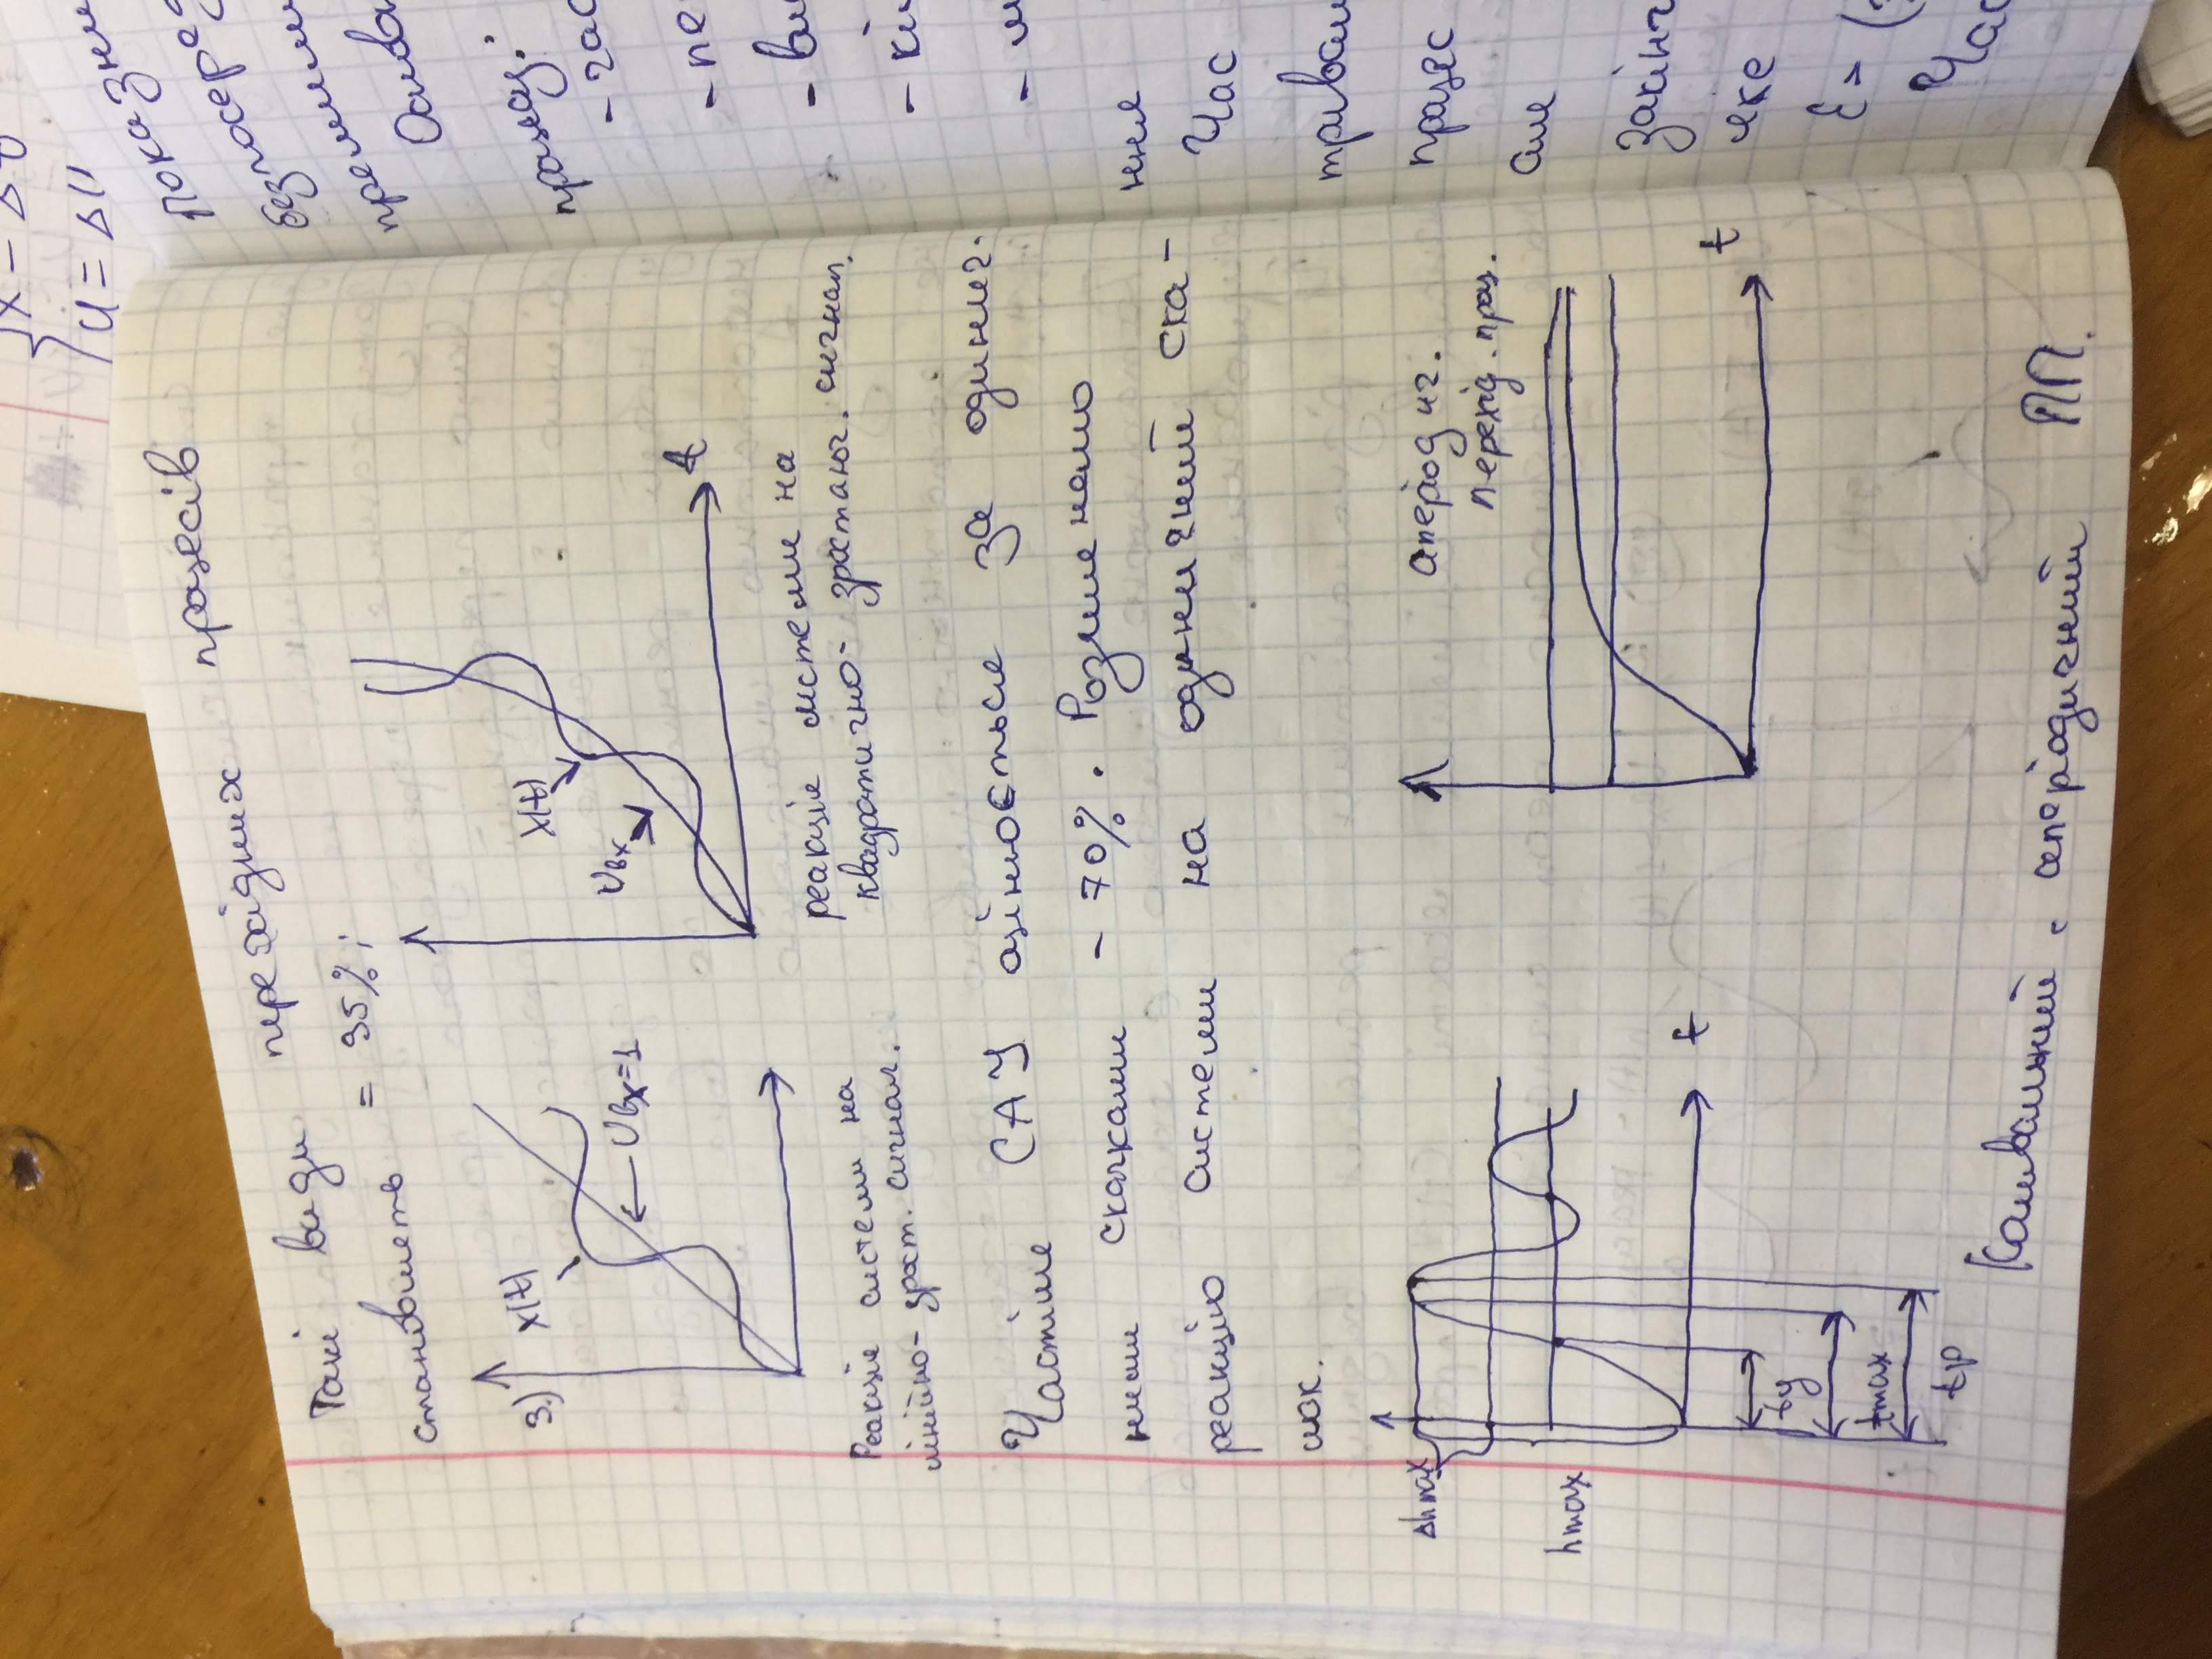 Такі види перехідних процесів
становлять = 95%;
3.)
X(t)
Uвх=1
X(t)
Uвх
t
Реакція системи на
лінійно-зрост. сигнал.
реакція системи на
квадратично-зростаюч. сигнал.
Частіше САУ оцінюється за одинич-
ними скачками - 70%. Розглянемо
реакцію системи на одиничний ска-
чок.
Δhmax
hmax
t
tу
tmax
tр
аперіодич.
перехід. проц.
t
Коливальний . аперіодичний ПП.
x - Δ
u = ΔU
Показни
безпосеред
Основ
- час
- пе
- ви
- кі
ння
Час
тривал
процес
але
закінч
яке
ε =
Час